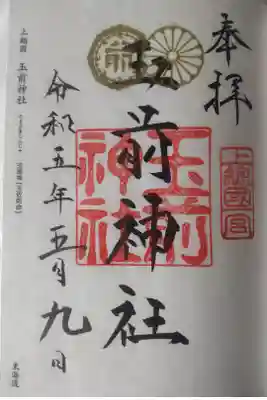 奉拝
上總國一宮
玉前神社
玉前神社
令和五年五月九日
上総国 玉前神社
東海道